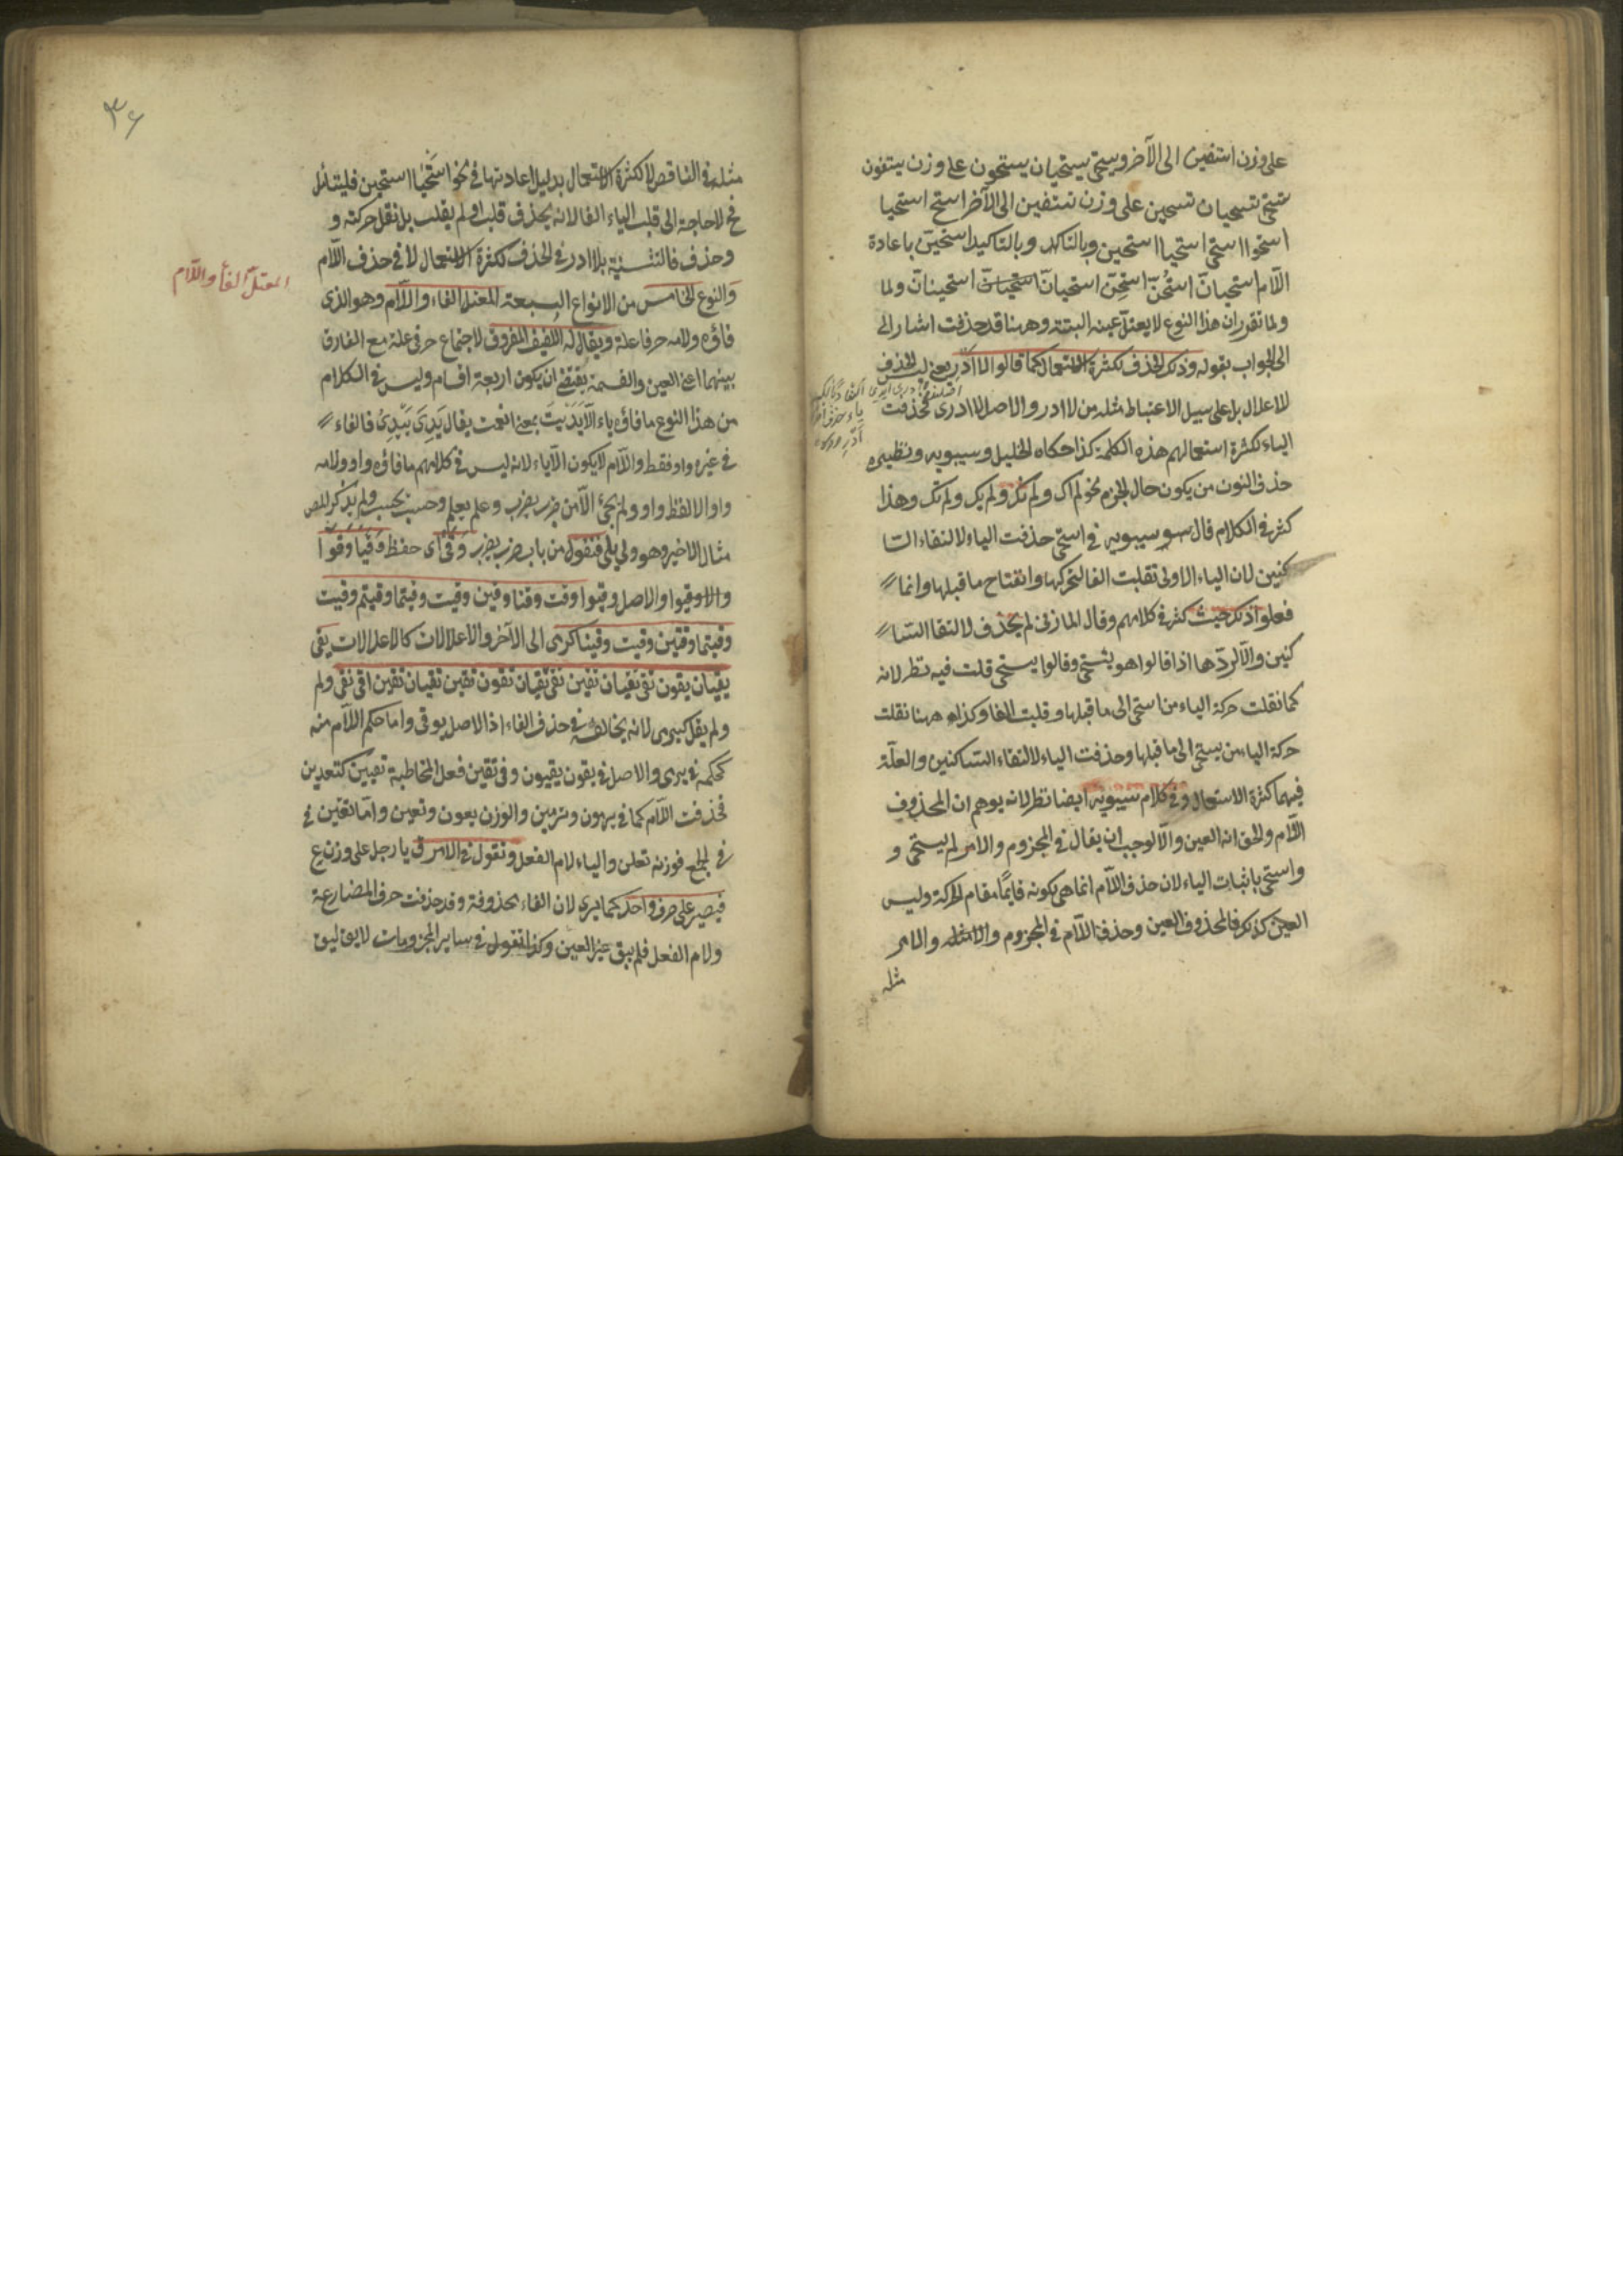 على وزن استفين الى الآخر ويستحى يستحيان يستحون على وزن يستفون
تستحى تستحيان تستحين على وزن تستفين الى الآخر استح استحيا
استحوا استحى استحيا استحين وبالتاكيد وبالتاكيد استحين باعادة
اللام استحيان استحن استحن استحيان استحيان استحينان ولما
ولما تقرر ان هذا النوع لا يعتل عينه البتة وههنا قد حذفت اشار الى
الى الجواب بقوله وذلك لحذف لكثرة الاستعمال كما قالوا لا ادر يعنى ليس لحذف
للاعلال بل على سبيل الاعتباط مثله من لا ادر والاصل لا ادرى فحذفت
الياء لكثرة استعمالهم هذه الكلمة كذا حكاه الخليل وسيبويه ونظيره
حذف النون من يكون حال الجزم نحو لم اك ولم نك ولم يك ولم تك وهذا
كثر فى الكلام قال سيبويه فى استحى حذفت الياء لالتقاء السا
كنين لان الياء الاولى تقلبت الفا لتحركها وانفتاح ما قبلها وانما
فعلوا ذلك حيث كثر فى كلامهم وقال المازنى لم يحذف لالتقا السا
كنين والا لردّها اذا قالوا هو يستحى وقالوا يستحى قلت فيه نظر لانه
كما نقلت حركة الياء من استحى الى ما قبلها وقلبت الفا وكذلك ههنا نقلت
حركة الياء من يستحى الى ما قبلها وحذفت الياء لالتقاء الساكنين والعلّة
فيهما كثرة الاستعمال وفى كلام سيبويه ايضا نظر لانه يوهم ان المحذوف
اللام ولحق انه العين والا لوجب ان يقال فى المجزوم والامر لم يستحى و
واستحى باثبات الياء لان حذف اللام انما هى لكونه قايمًا مقام الحركة وليس
العين كذلك فالمحذوف العين وحذف اللام فى المجزوم والامثله والامر
مثله
٣٤
مثله فى الناقص لا لكثرة الاستعمال بدليل اعادتها فى نحو استحيا استحين فليتأمل
فح لا حاجة الى قلب الياء الفا لانه يحذف قلب او لم يقلب بل نقل حركته و
وحذف فالتشبيه بلا ادر فى الحذف لكثرة الاستعمال لا فى حذف اللام
والنوع الخامس من الانواع السبعة المعتل الفاء واللام وهو الذى
فاؤه ولامه حرفا علة ويقال له اللفيف المفروق لاجتماع حرفى علة مع الفارق
بينهما اعنى العين والقسمة يقتضى ان يكون اربعة اقسام وليس فى الكلام
من هذا النوع ما فاؤه ياء الا يديت بمعنى انعمت يقال يدى ييدى فالفاء
فى غيره واو فقط واللام لا يكون الا ياء لانه ليس فى كلامهم ما فاؤه واو ولامه
واو الا لفظ واو ولم يجئ الا من ضرب يضرب وعلم يعلم وحسب يحسب ولم يذكر المص
مثال الاخير وهو ولى يلى فتقول من باب ضرب يضرب وقى اى حفظ وقيا وقوا
والا وقيوا والاصل وقيوا وقت وقتا وقين وقيت وقيتما وقيتم وقيت
وقيتما وقيتن وقيت وقينا كرمى الى الآخر والاعلالات كالاعلالات يقى
يقيان يقون تقى تقيان تقين تقى تقيان تقون تقين تقيان تقين اقى نقى ولم
ولم يقل كيرمى لانه يخالفه فى حذف الفاء اذ الاصل يوقى واما حكم اللام منه
كحكمه فى يرمى والاصل فى يقون يقيون وفى تقين فعل المخاطبة تقيين كتعدين
فحذفت اللام كما فى يرمون وترمين والوزن يعون وتعين واما تقين فى
فى الجمع فوزنه تعلن والياء لام الفعل وتقول فى الامر ق يا رجل على وزن ع
فيصير على حرف واحد كما يرى لان الفاء محذوفة وقد حذفت حرف المضارعة
ولام الفعل فلم يبق غير العين وكذا تقول فى ساير المجزومات لا يق ليق
المعتل الفا واللام